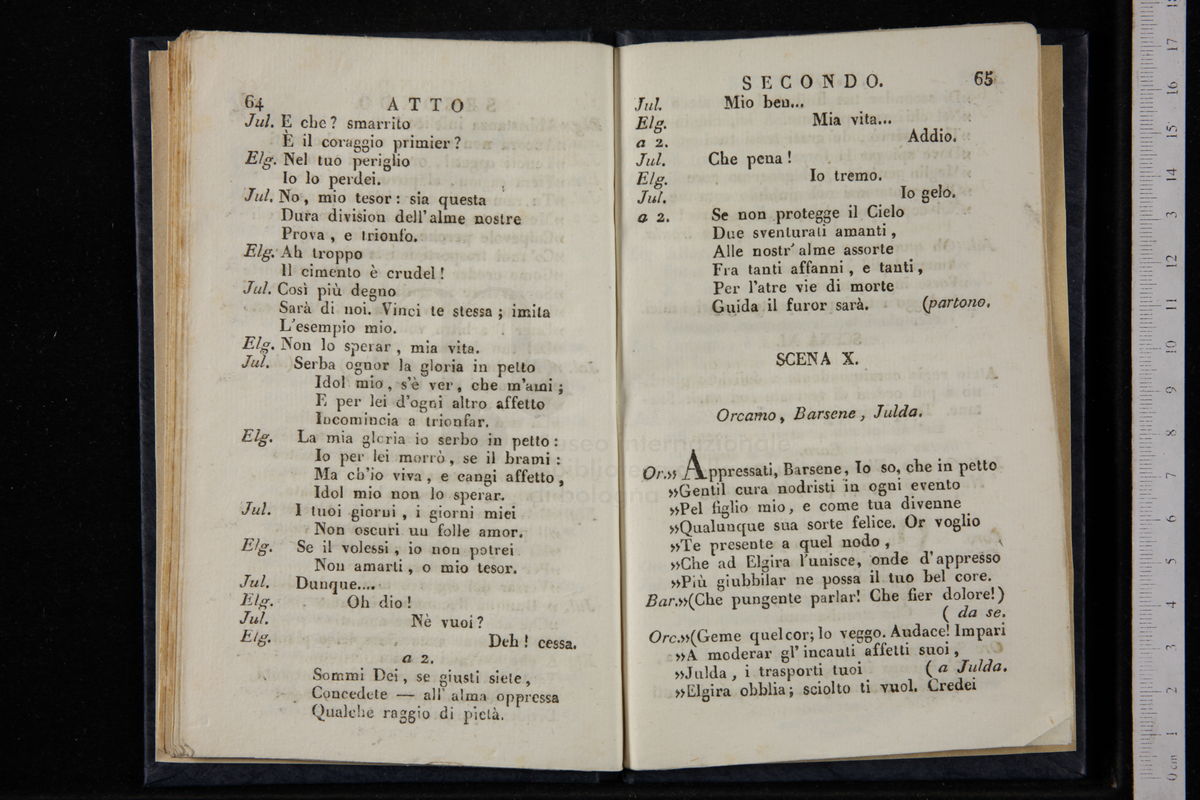 64 ATTO
Jul. E che? smarrito
È il coraggio primier?
Elg. Nel tuo periglio
Io lo perdei.
Jul. No, mio tesor: sia questa
Dura division dell'alme nostre
Prova, e trionfo.
Elg. Ah troppo
Il cimento è crudel!
Jul. Così più degno
Sarà di noi. Vinci te stessa; imita
L'esempio mio.
Elg. Non lo sperar, mia vita.
Jul. Serba ognor la gloria in petto
Idol mio, s'è ver, che m'ami;
E per lei d'ogni altro affetto
Incomincia a trionfar.
Elg. La mia gloria io serbo in petto:
Io per lei morrò, se il brami:
Ma ch'io viva, e cangi affetto,
Idol mio non lo sperar.
Jul. I tuoi giorni, i giorni miei
Non oscuri un folle amor.
Elg. Se il volessi, io non potrei
Non amarti, o mio tesor.
Jul. Dunque....
Elg. Oh dio!
Jul. Nè vuoi?
Elg. Deh! cessa.
a 2.
Sommi Dei, se giusti siete,
Concedete — all' alma oppressa
Qualche raggio di pietà.
SECONDO. 65
Jul. Mio ben...
Elg. Mia vita...
a 2. Addio.
Jul. Che pena!
Elg. Io tremo.
Jul. Io gelo.
a 2. Se non protegge il Cielo
Due sventurati amanti,
Alle nostr' alme assorte
Fra tanti affanni, e tanti,
Per l'atre vie di morte
Guida il furor sarà. (partono.
SCENA X.
Orcamo, Barsene, Julda.
Or.» Appressati, Barsene, Io so, che in petto
»Gentil cura nodristi in ogni evento
»Pel figlio mio, e come tua divenne
»Qualunque sua sorte felice. Or voglio
»Te presente a quel nodo,
»Che ad Elgira l'unisce, onde d'appresso
»Più giubbilar ne possa il tuo bel core.
Bar.»(Che pungente parlar! Che fier dolore!)
( da se.
Orc.»(Geme quel cor; Io veggo. Audace! Impari
»A moderar gl' incauti affetti suoi,
»Julda, i trasporti tuoi ( a Julda.
»Elgira obblia; sciolto ti vuol. Credei